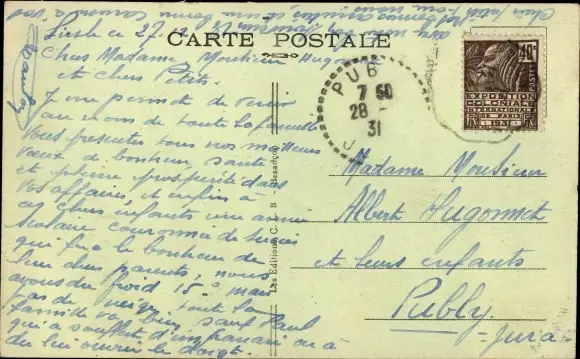 Liesle ce 27.
CARTE POSTALE
Chers Madame, Monsieur Hugonnet
et chers Petits.
Je me permet de venir
au nom de toute la famille
vous présenter tous nos meilleurs
vœux de bonheur, santé
et pleine prospérité dans
vos affaires, et enfin à
ces chers enfants une année
scolaire couronnée de succès
qui fera le bonheur de
leur chers parents, nous
avons du froid 15° mais
pas de neige, toute la
famille va bien, sauf Paul
qui a souffert d'un panari on a
du lui ouvrir le doigt.
Les Editions C. L. B. - Besançon
PUB
7 50
28
31
40c
POSTES
EXPOSITION
COLONIALE
INTERNATIONALE
DE PARIS
1931
Madame Monsieur
Albert Hugonnet
et leurs enfants
Publy
Jura